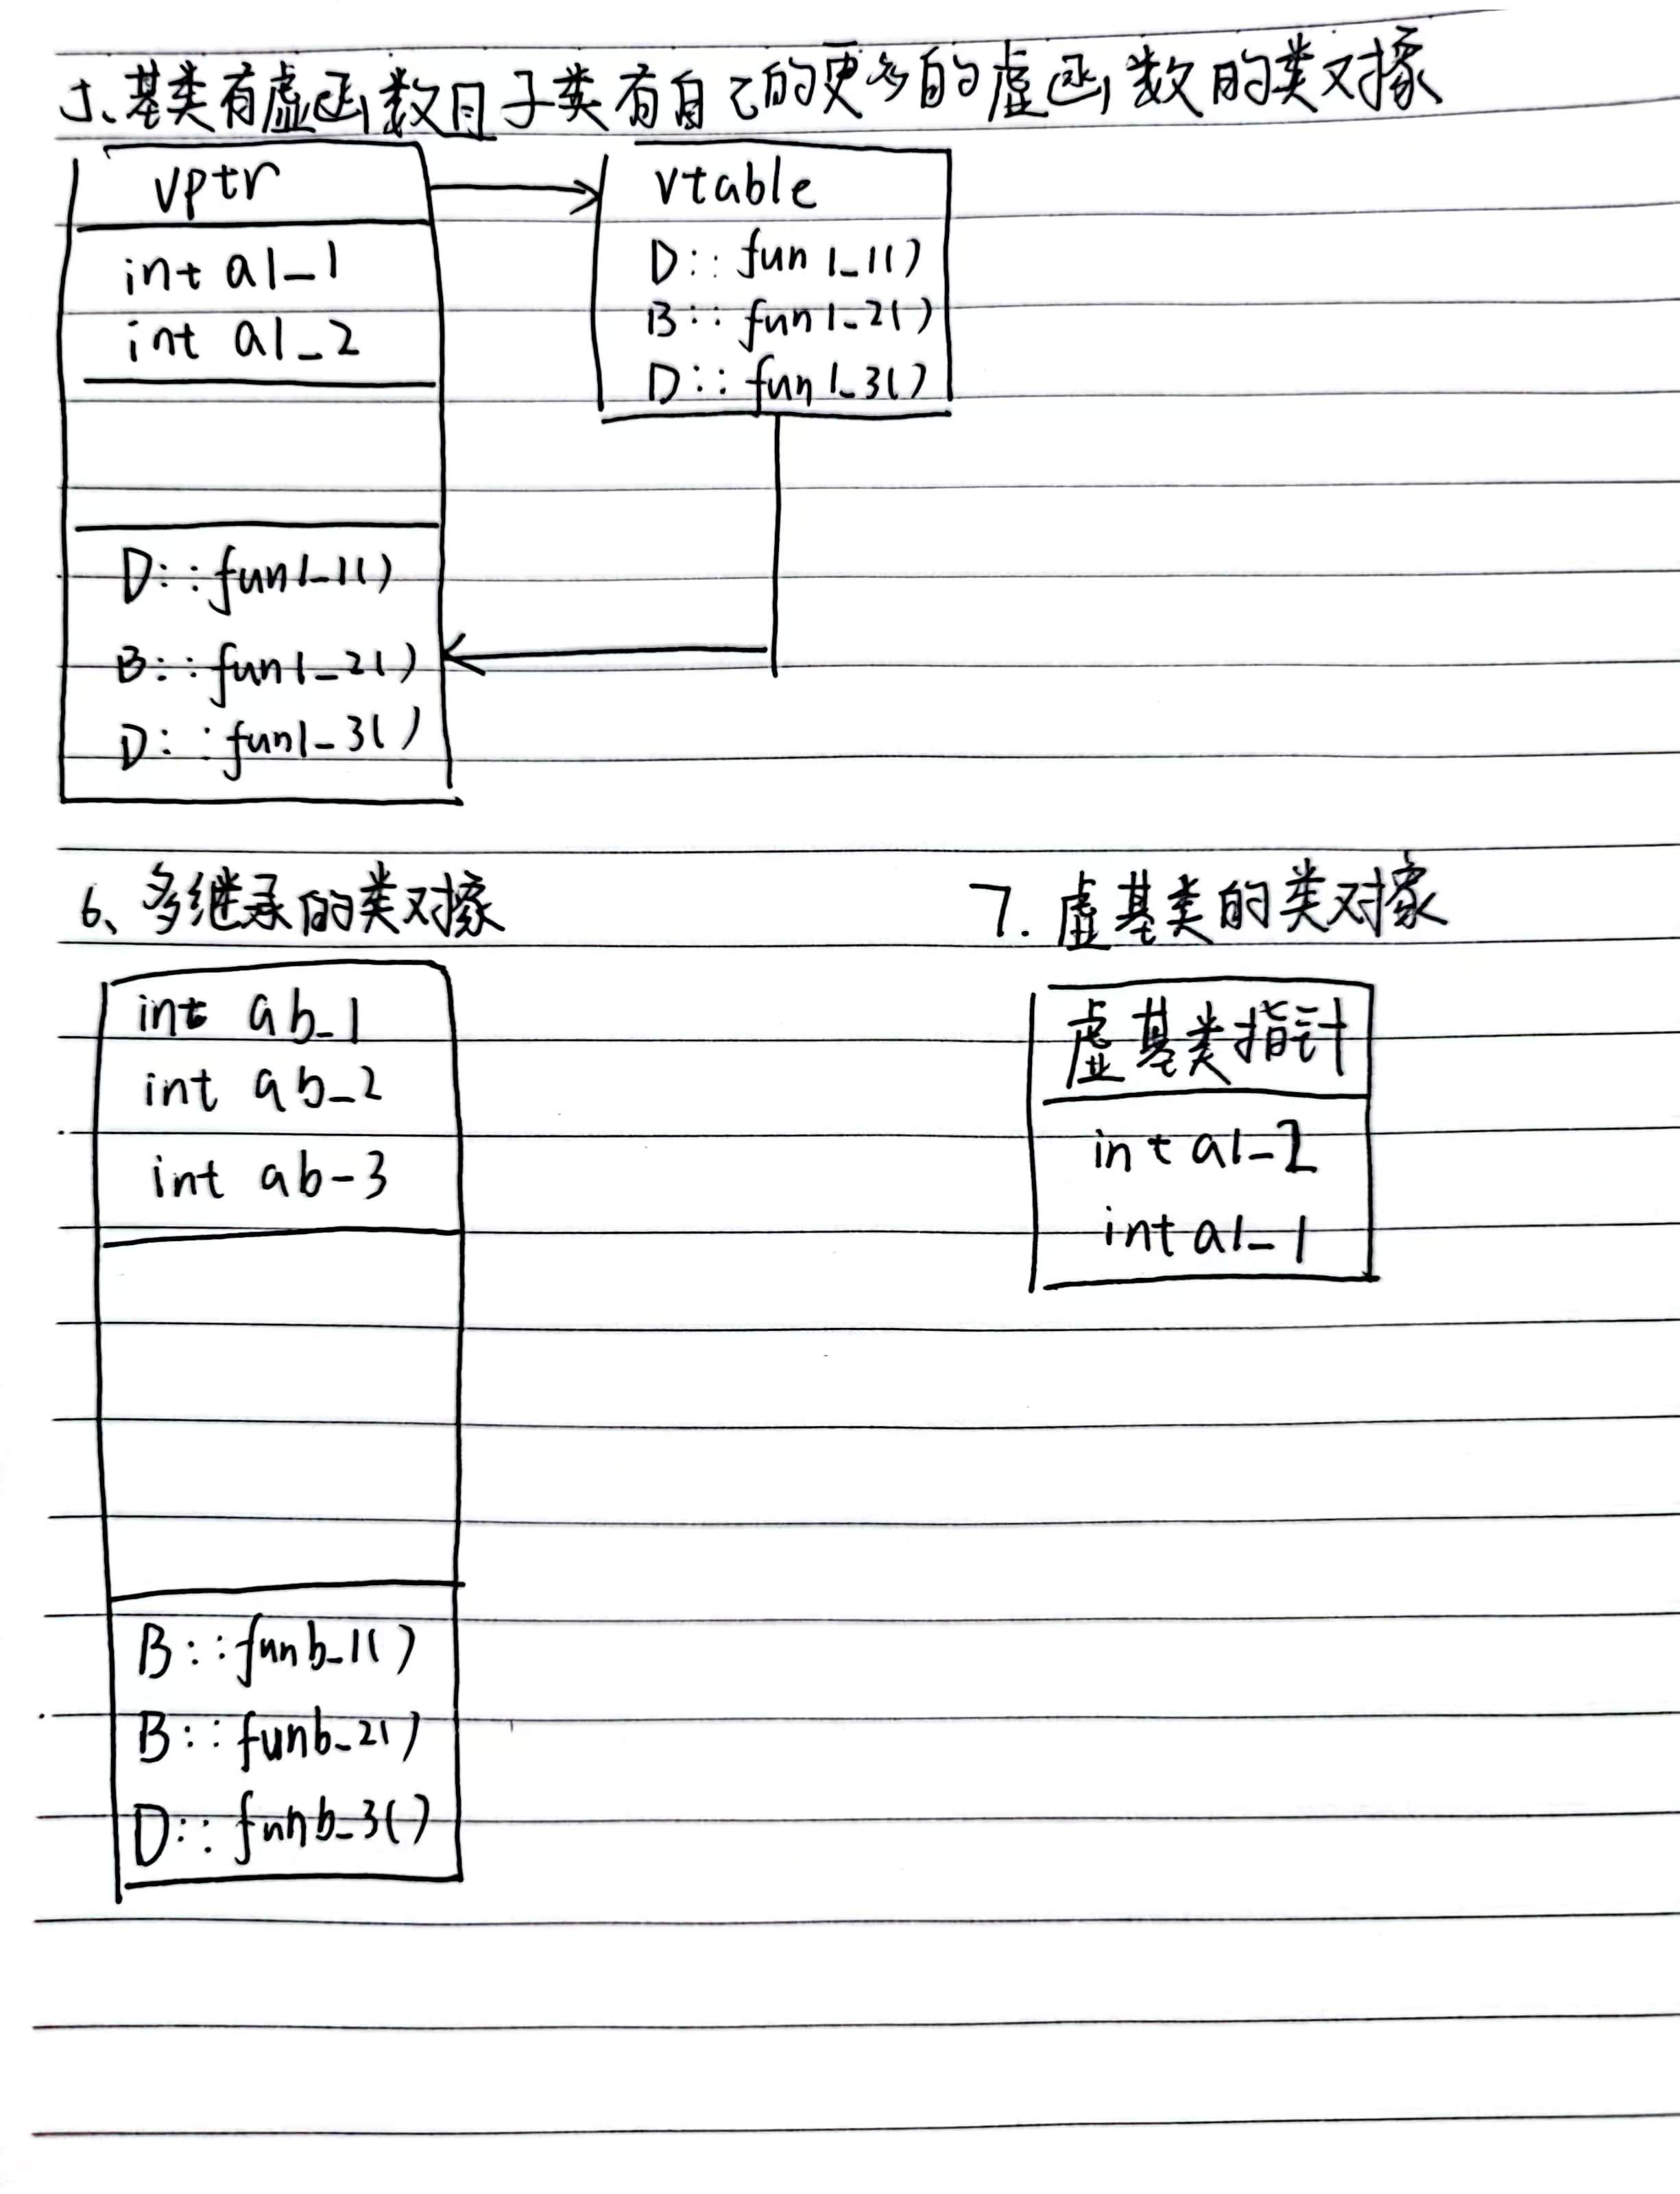 5、基类有虚函数且子类有自己的更多的虚函数的类对象
vptr
int a1_1
int a1_2
D::fun1_1()
B::fun1_2()
D::fun1_3()
vtable
D::fun1_1()
B::fun1_2()
D::fun1_3()
6、多继承的类对象
int ab_1
int ab_2
int ab-3
B::funb_1()
B::funb_2()
D::funb_3()
7.虚基类的类对象
虚基类指针
int a1_2
int a1_1